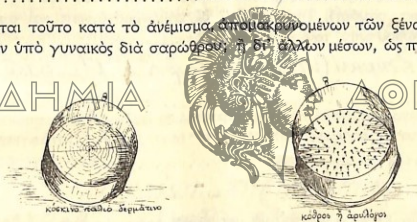 ται τοῦτο κατὰ τὸ ἀνέμισμα, ἀπομακρυνομένων τῶν ξένω
ν ὑπὸ γυναικὸς διὰ σαρώθρου, ἢ δι' ἄλλων μέσων, ὡς π
ΔΗΜΙΑ ΑΘΗ
κόσκινο παλιὸ δερμάτινο
κόθρος ἢ ἀρυλόγος